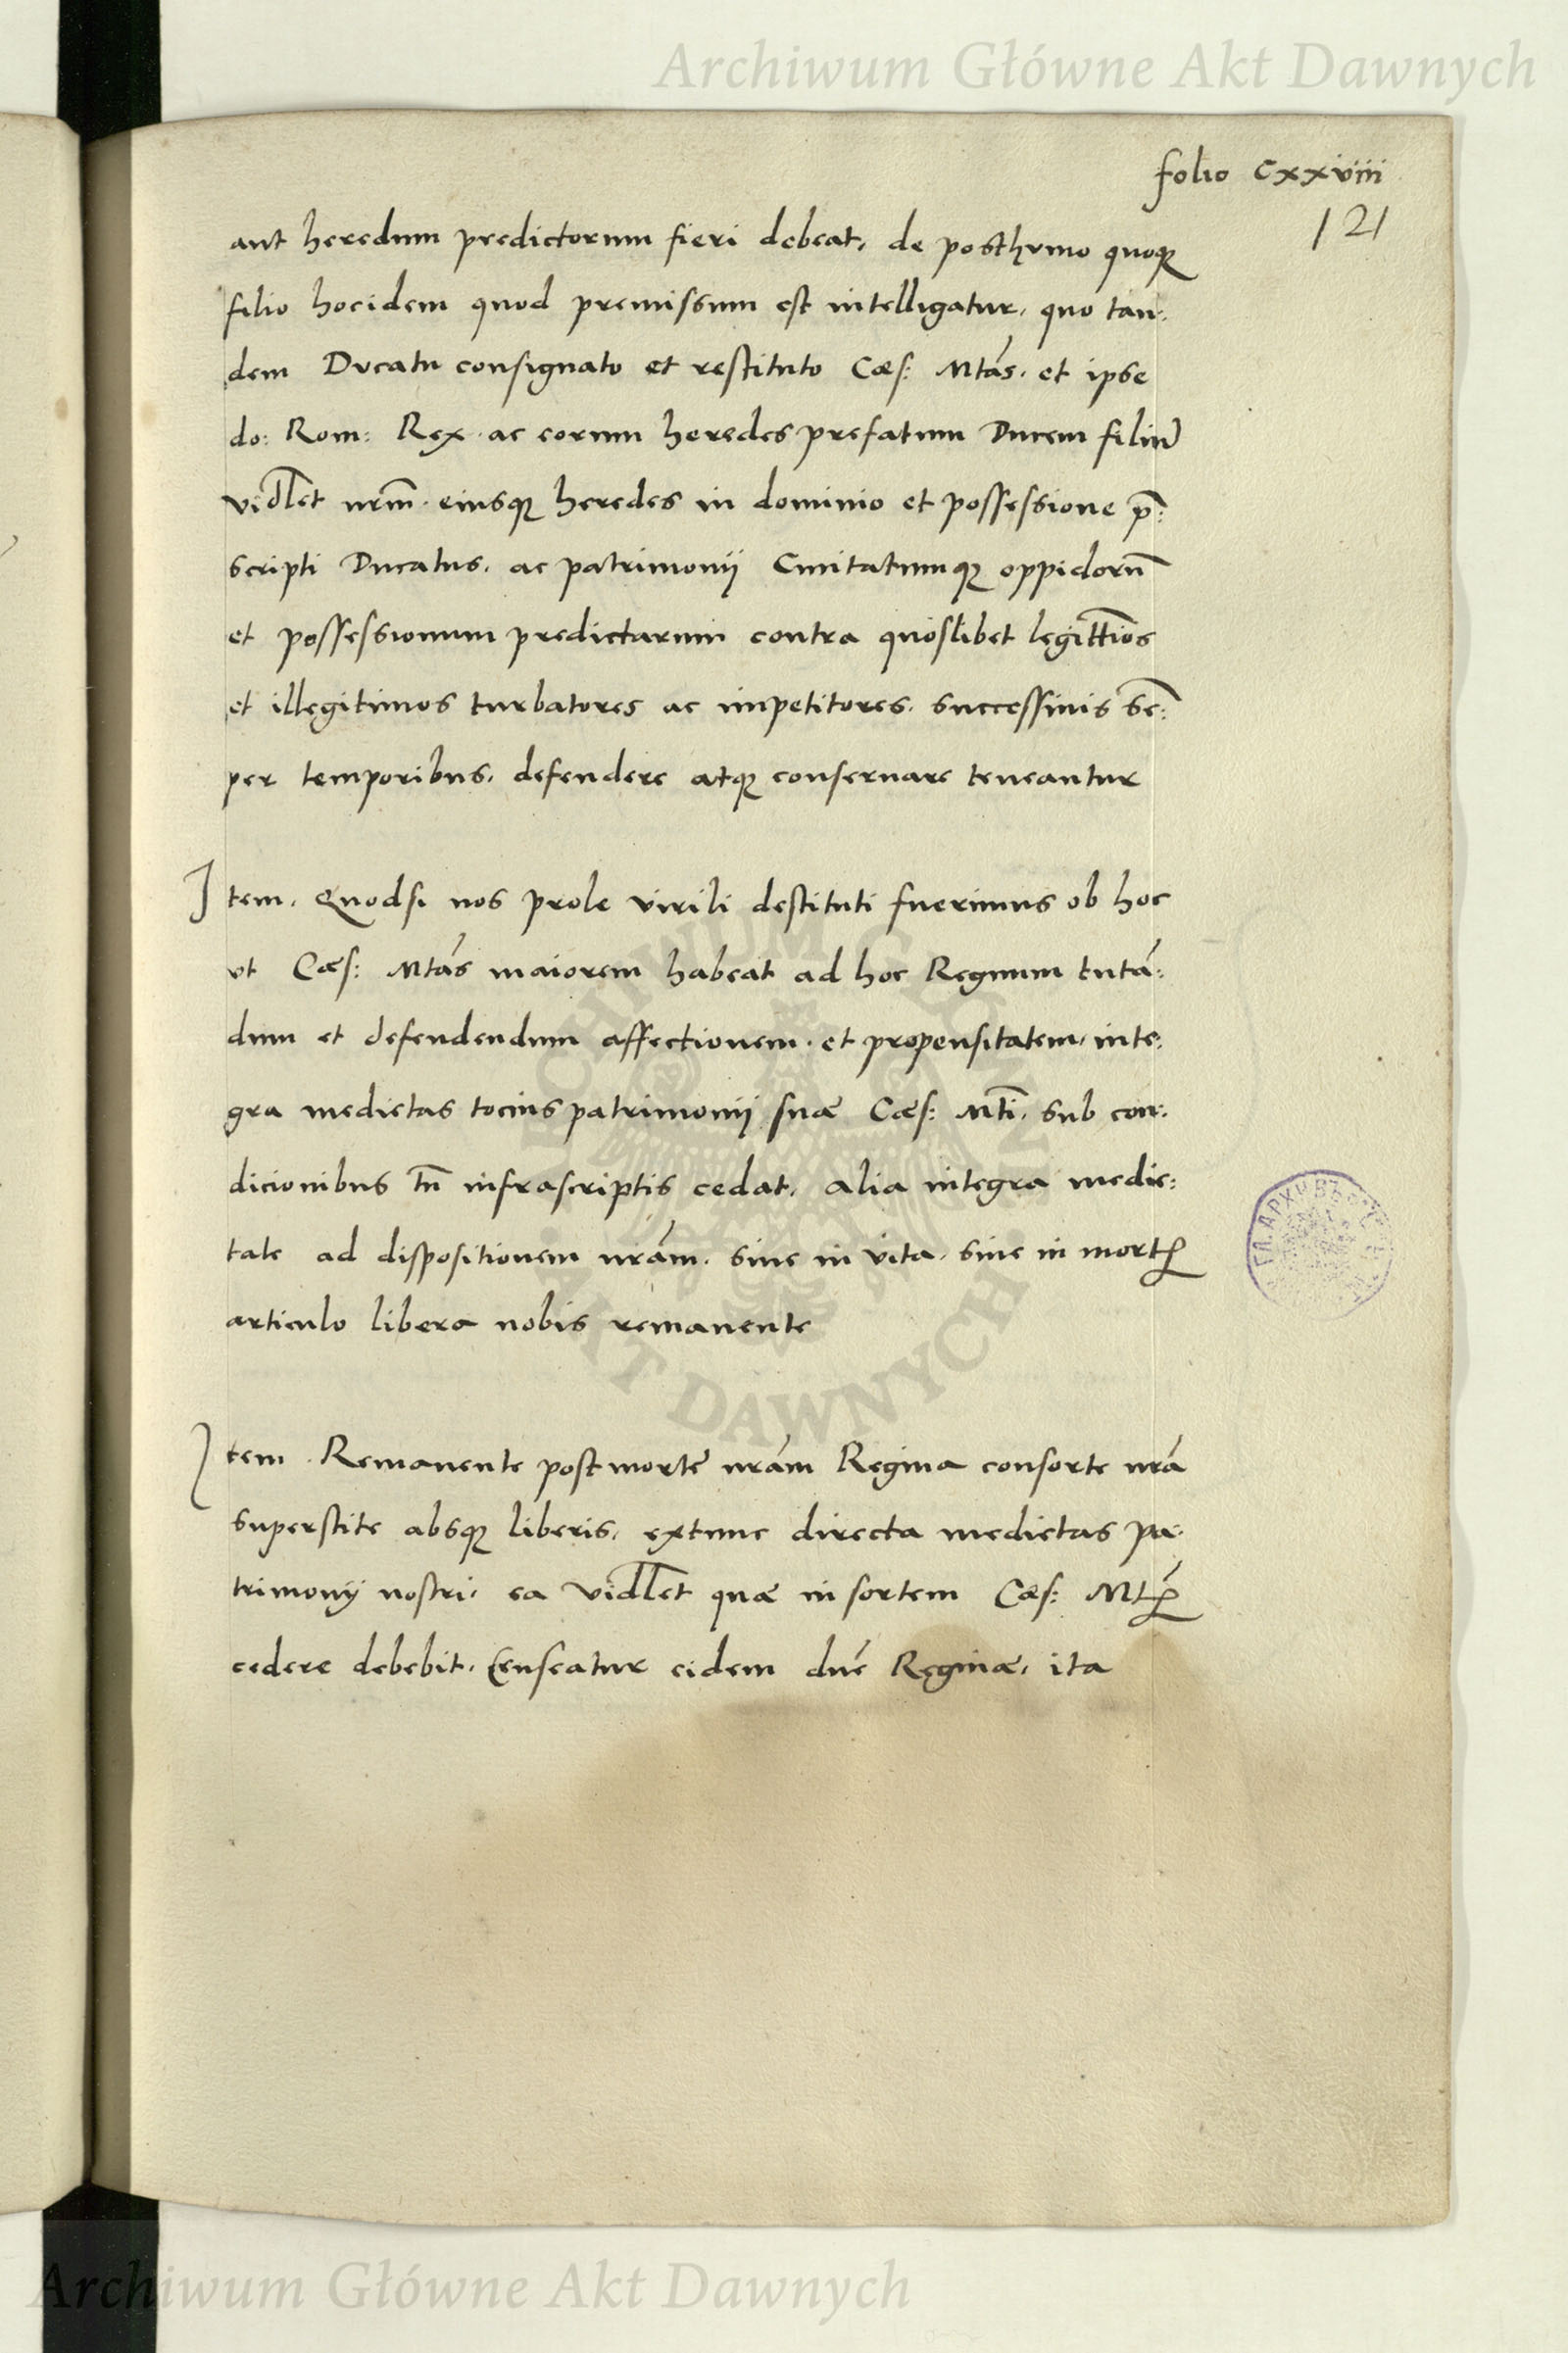 Archiwum Główne Akt Dawnych
folio cxxviii
121
aut heredum predictorum fieri debeat, de posthvmo quoq3
filio hocidem quod premissum est intelligatur, quo tan:
dem Ducatu consignato et restituto Cæs: Mtás. et ipse
do: Rom: Rex. ac eorum heredes prefatum Ducem filiũ
vidlet nrm̃. eiusq3 heredes in dominio et possessione p̃:
scripti Ducatus, ac patrimonij Ciuitatumq3 oppidorũ
et possessionum predictarum contra quoslibet legittĩos
et illegitimos turbatores ac impetitores, successiuis sẽ:
per temporibus, defendere atq3 conseruare teneantur
Item, Quodsi nos prole virili destituti fuerimus ob hoc
vt Cæs: Mtás maiorem habeat ad hoc Regnum tutã:
dum et defendendum affectionem. et propensitatem, inte:
gra medietas tocius patrimonij suæ Cæs: Mti. sub con:
dicionibus tñ infrascriptis cedat, alia integra medie:
tate ad dispositionem nrám. siue in vita, siue in mortꝭ
articulo libera nobis remanente
Item. Remanente post mortẽ nrám Regina consorte nrá
superstite absq3 liberis, extunc directa medietas pa:
trimonij nostri, ea vidlet quæ in sortem Cæs: Mtꝭ
cedere debebit, Censeatur eidem dnẽ Reginæ, ita
AKT DAWNYCH
Archiwum Główne Akt Dawnych